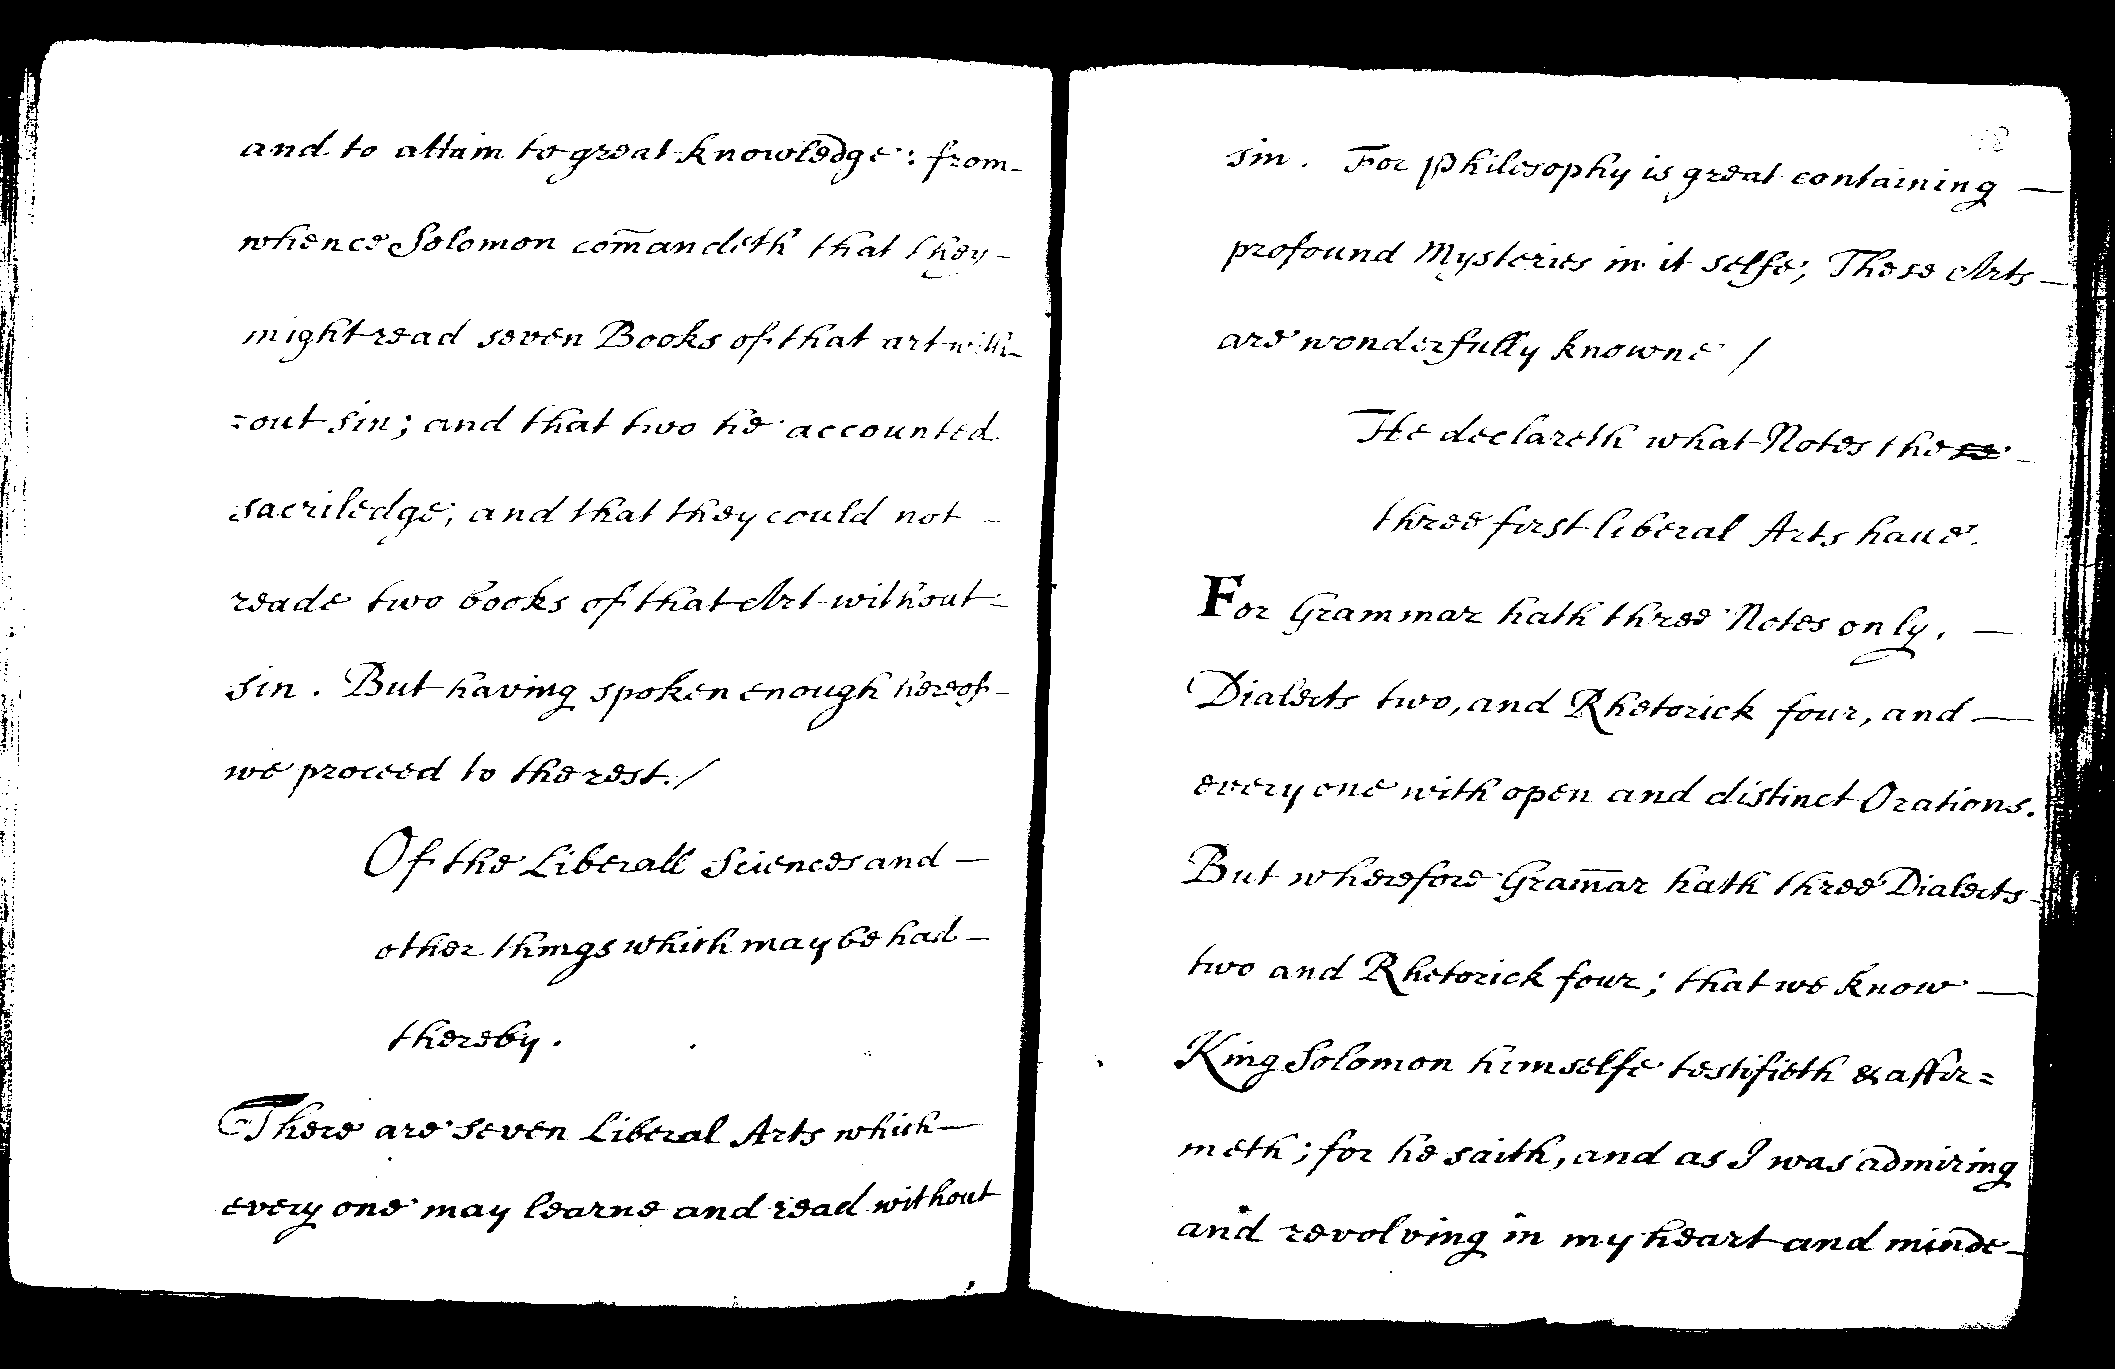 and to attain to great knowledge: from-
whence Solomon com̄andeth that they-
might read seven Books of that art with-
=out sin; and that two he accounted
sacriledge; and that they could not -
reade two books of that Art without-
sin. But having spoken enough hereof-
we proceed to the rest./
Of the Liberall Sciences and —
other things which may be had —
thereby.
There are seven Liberal Arts which —
every one may learne and read without
sin. For Philosophy is great containing —
profound Mysteries in it selfe; These Arts —
are wonderfully knowne /
He declareth what Notes these -
three first liberal Arts haue.
For Grammar hath three Notes only. —
Dialects two, and Rhetorick four, and —
every one with open and distinct Orations.
But wherefore Gram̄ar hath three Dialects -
two and Rhetorick four; that we know —
King Solomon himselfe testifieth & affir=
meth; for he saith, and as I was admiring
and revolving in my heart and minde -